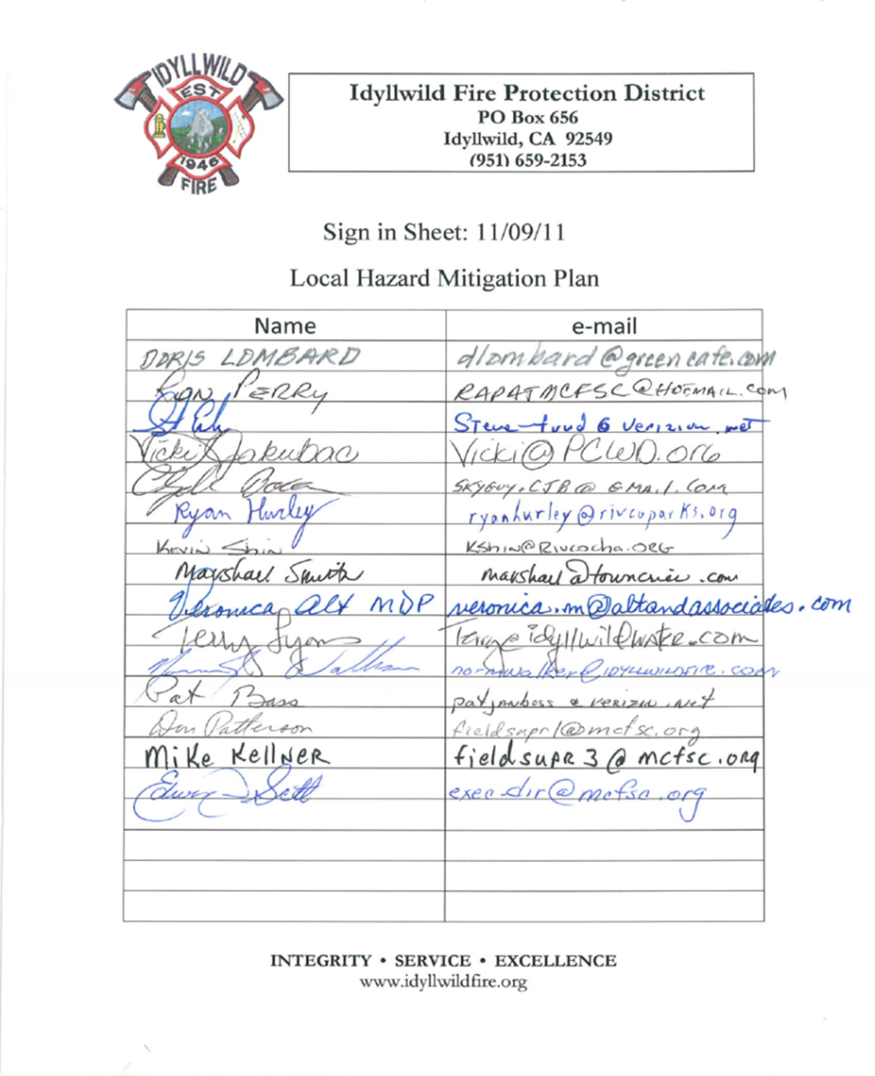 IDYLLWILD
EST
1946
FIRE
Idyllwild Fire Protection District
PO Box 656
Idyllwild, CA 92549
(951) 659-2153
Sign in Sheet: 11/09/11
Local Hazard Mitigation Plan
Name e-mail
DORIS LOMBARD dlombard@greencafe.com
RON PERRY RAPATMCFSC@HOTMAIL.COM
Vicki Jakubac Vicki@PCWD.org
Clyde SKYGUY.CJB@GMAIL.COM
Ryan Hurley ryanhurley@rivcoparks.org
Kevin Shin KShin@Rivcocha.ORG
Marshall Smith marshall@towncrier.com
Veronica Alt MDP veronica.m@altandassociates.com
Terry Lyons
normwalker@IDYLLWILDFIRE.COM
Pat Bass
Don Patterson fieldsupr1@mcfsc.org
Mike Kellner fieldsupR3@mcfsc.org
exec-dir@mcfsc.org
INTEGRITY • SERVICE • EXCELLENCE
www.idyllwildfire.org